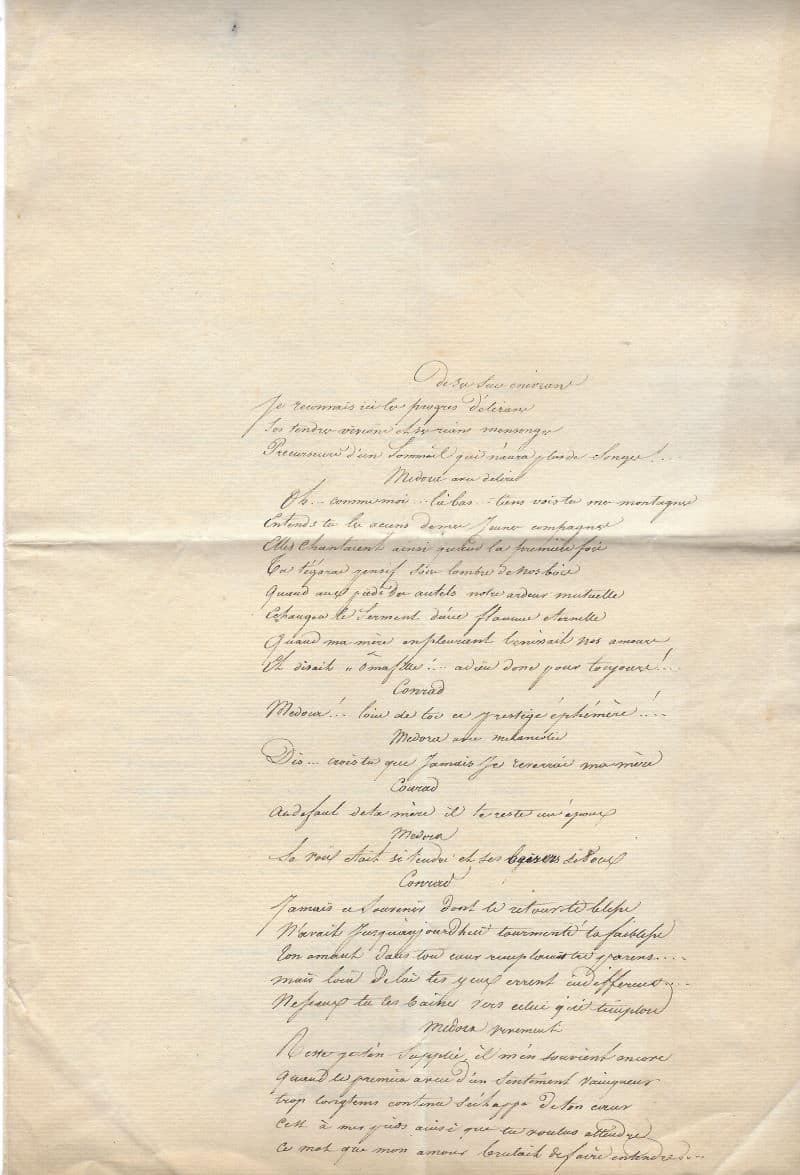 De sa
Je reconnais ici le progrès
Ses tendres visions et ses rians mensonges
Precurseurs d'un Sommeil qui n'aura plus de Songes!...
Medora avec delire
Oh... comme moi... là bas... tiens vois tu ma montagne
Entends tu les accens de mes Jeunes compagnes
Elles Chantaient ainsi quand la première fois
Tu pensif sous l'ombre de nos bois
Quand aux pieds des autels notre ardeur mutuelle
Echangea le Serment d'une flamme eternelle
Quand ma mère en pleurant benissait nos amours
Et disait " ô ma fille!... adieu donc pour toujours!...
Conrad
Medora!.. loin de toi ce prestige éphémère!...
Medora avec melancolie
Dis... crois tu que Jamais Je reverrai ma mère
Conrad
Au defaut de ta mère il te reste un époux
Medora
Sa voix était si tendre et ses baisers si doux
Conrad
Jamais ce Souvenir dont le retour te blesse
N'avait Jusqu'aujourd'hui tourmenté ta faiblesse
Ton amant dans ton cœur remplacait tes parens....
mais loin de lui tes yeux errent indifferens....
Ne peux tu les baisser vers celui qui t'implore
Medora vivement
Reste il m'en souvient encore
Quand le premier aveu d'un Sentiment vainqueur
trop longtems contenu S'échappa de ton cœur
C'est à mes pieds ainsi que tu voulus attendre
Ce mot que mon amour brulait de faire entendre...